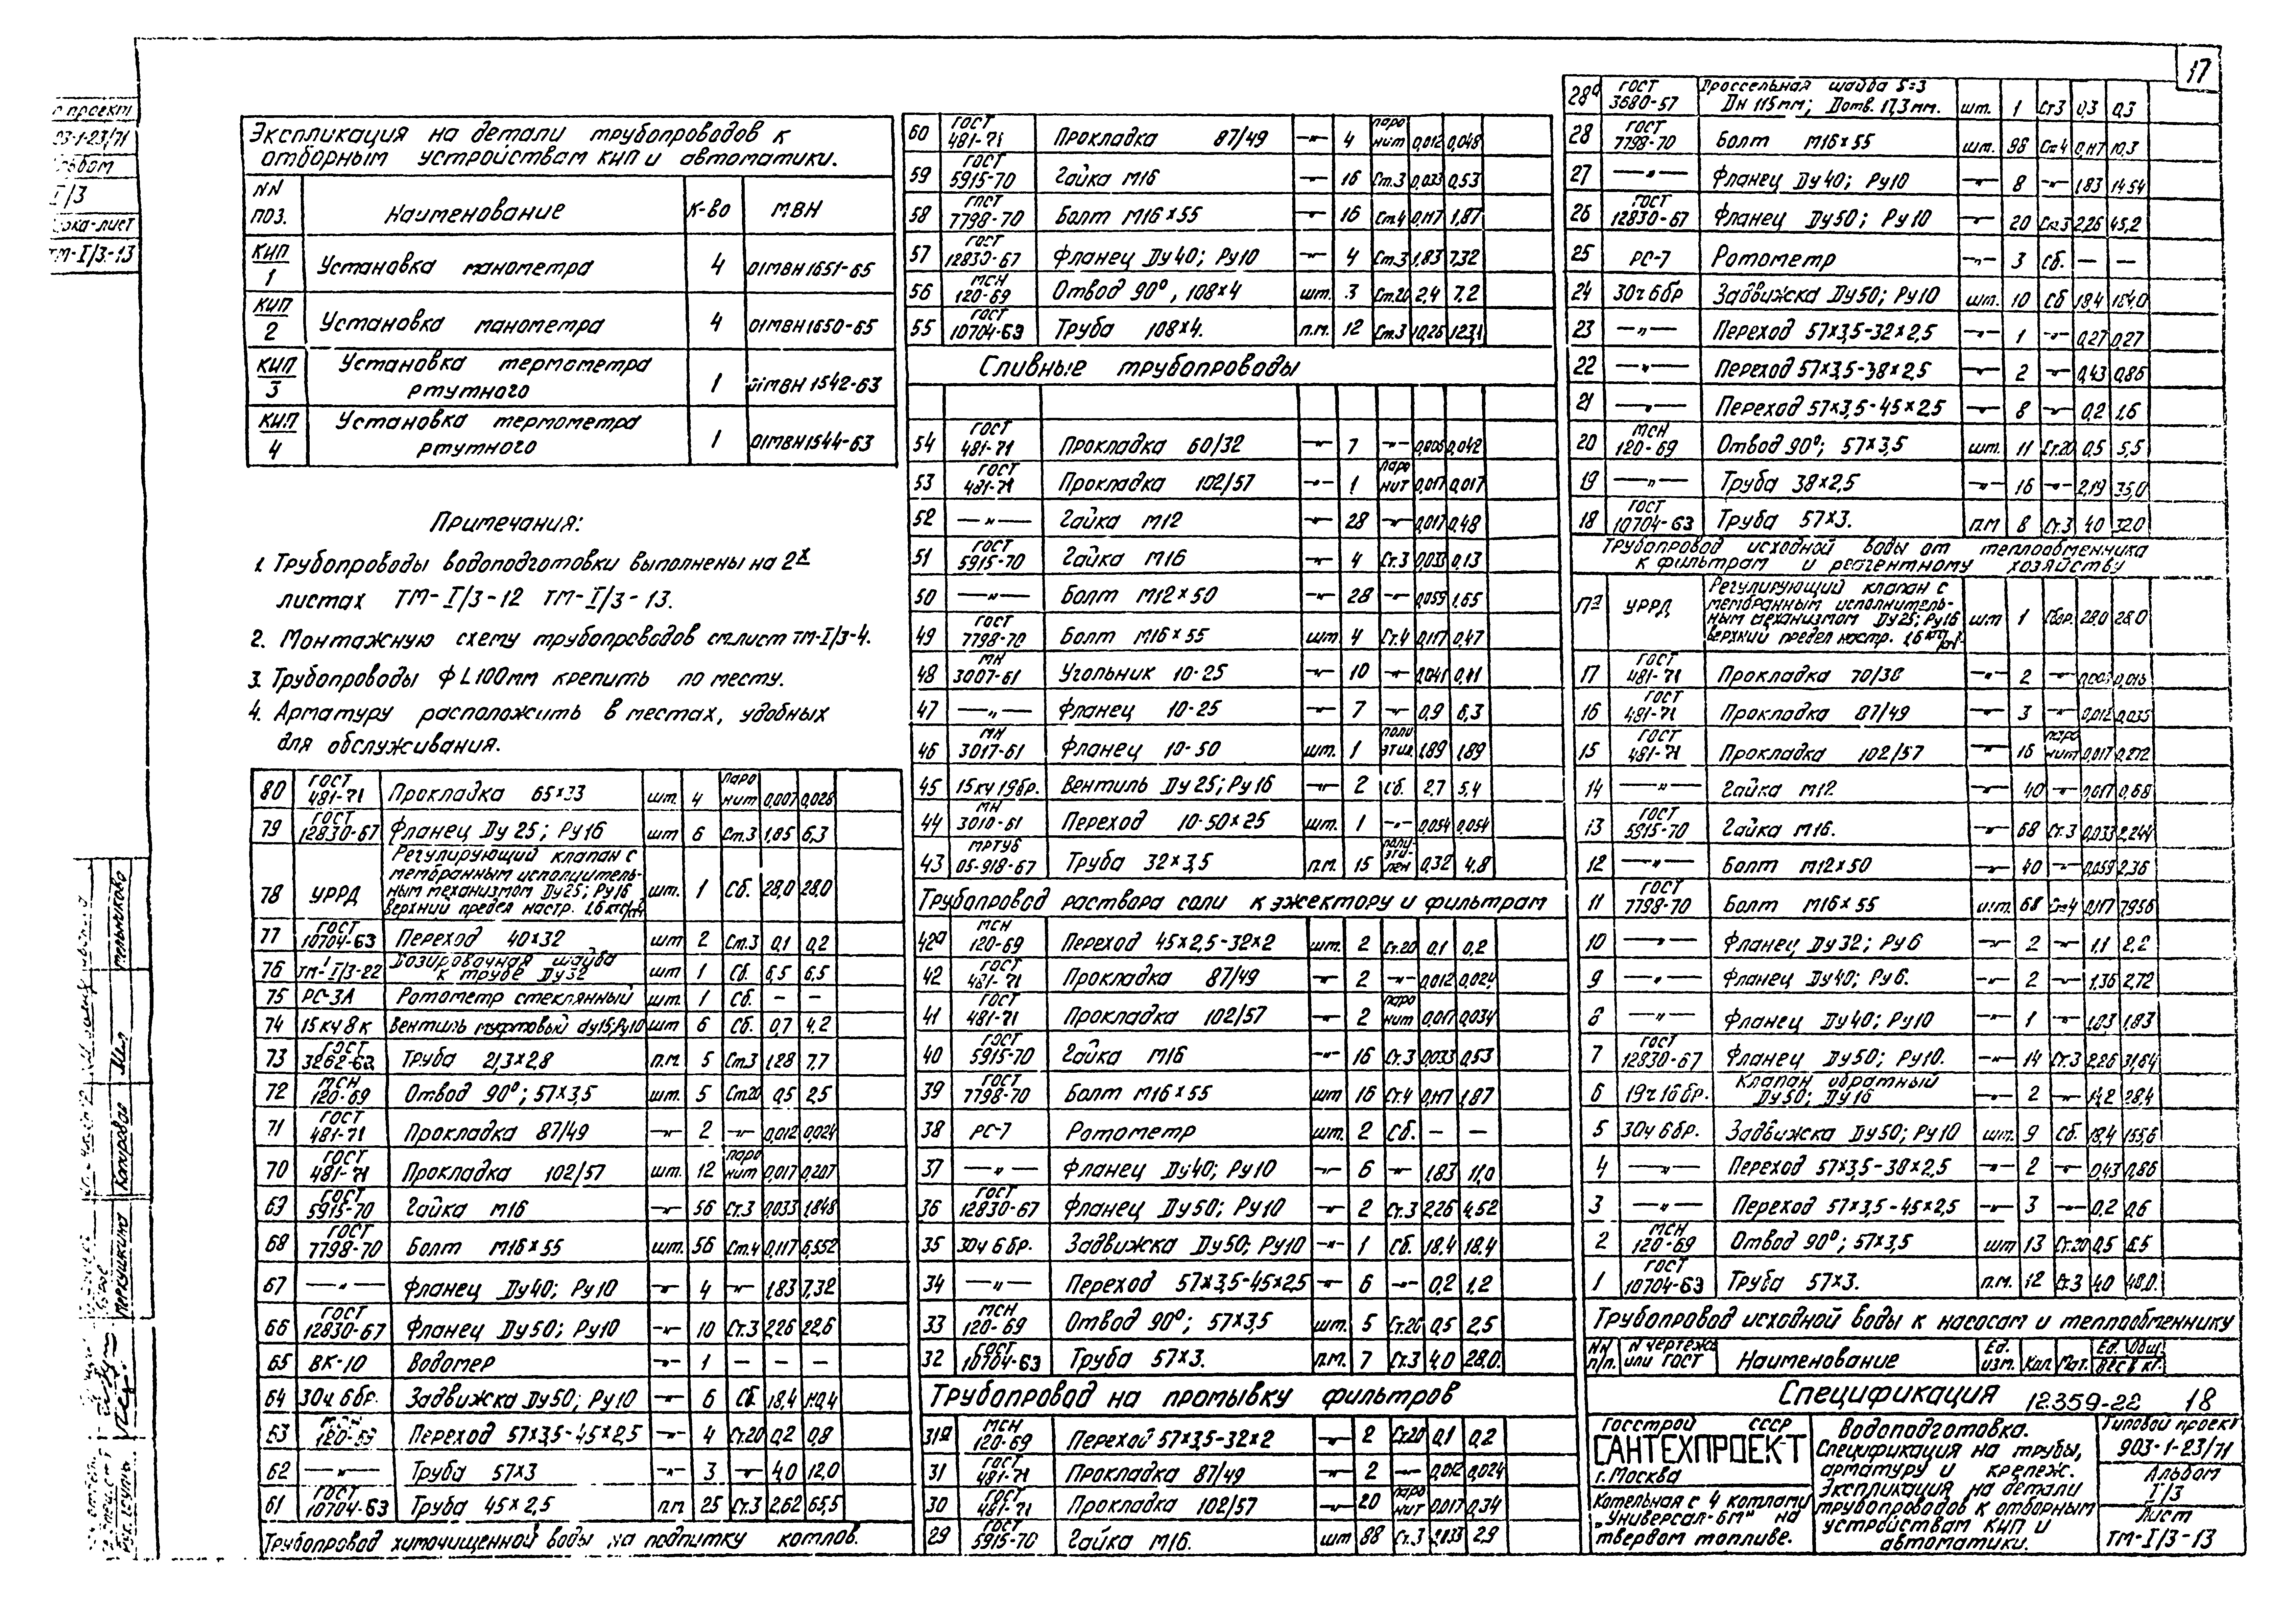 17
Экспликация на детали трубопроводов к
отборным устройствам кип и автоматики.
NN поз. Наименование К-во МВН
КИП/1 Установка манометра 4 01МВН1651-65
КИП/2 Установка манометра 4 01МВН1650-65
КИП/3 Установка термометра ртутного 1 01МВН1542-63
КИП/4 Установка термометра ртутного 1 01МВН1544-63
Примечания:
1. Трубопроводы водоподготовки выполнены на 2х
листах ТМ-I/3-12 ТМ-I/3-13.
2. Монтажную схему трубопроводов см.лист ТМ-I/3-4.
3. Трубопроводы ф L100мм крепить по месту.
4. Арматуру расположить в местах, удобных
для обслуживания.
80 ГОСТ 481-71 Прокладка 65×33 шт. 4 паронит 0,007 0,028
79 ГОСТ 12830-67 Фланец Ду 25; Ру16 шт 6 Ст.3 1,05 6,3
78 УРРД Регулирующий клапан с
мембранным исполнитель-
ным механизмом Ду25; Ру16
верхний предел настр. 1,6 кгс/см² шт. 1 Сб. 28,0 28,0
77 ГОСТ 10704-63 Переход 40×32 шт 2 Ст.3 0,1 0,2
76 ТМ-I/3-22 Дозировочная шайба к трубе Ду32 шт 1 Сб. 6,5 6,5
75 РС-3А Ротометр стеклянный шт. 1 Сб. — —
74 15кч8к Вентиль муфтовый dу15;Ру10 шт 6 Сб. 0,7 4,2
73 ГОСТ 3262-62 Труба 21,3×2,8 п.м. 5 Ст.3 1,28 7,7
72 МСН 120-69 Отвод 90°; 57×3,5 шт. 5 Ст.20 0,5 2,5
71 ГОСТ 481-71 Прокладка 87/49 —"— 2 —"— 0,012 0,024
70 ГОСТ 481-71 Прокладка 102/57 шт. 12 паронит 0,017 0,207
69 ГОСТ 5915-70 Гайка М16 —"— 56 Ст.3 0,033 1,848
68 ГОСТ 7798-70 Болт М16×55 шт. 56 Ст.4 0,117 6,552
67 —"— Фланец Ду40; Ру10 —"— 4 —"— 1,83 7,32
66 ГОСТ 12830-67 Фланец Ду50; Ру10 —"— 10 Ст.3 2,26 22,6
65 ВК-10 Водомер —"— 1 — — —
64 30ч 6бр. Задвижка Ду50; Ру10 —"— 6 Сб. 18,4 110,4
63 МСН 120-69 Переход 57×3,5-45×2,5 —"— 4 Ст.20 0,2 0,8
62 —"— Труба 57×3 —"— 3 —"— 4,0 12,0
61 ГОСТ 10704-63 Труба 45×2,5 п.м 25 Ст.3 2,62 65,5
Трубопровод химочищенной воды на подпитку котлов.
60 ГОСТ 481-71 Прокладка 87/49 —"— 4 паронит 0,012 0,048
59 ГОСТ 5915-70 Гайка М16 —"— 16 Ст.3 0,033 0,53
58 ГОСТ 7798-70 Болт М16×55 —"— 16 Ст.4 0,117 1,87
57 ГОСТ 12830-67 Фланец Ду40; Ру10 —"— 4 Ст.3 1,83 7,32
56 МСН 120-69 Отвод 90°, 108×4 шт. 3 Ст.20 2,4 7,2
55 ГОСТ 10704-63 Труба 108×4. п.м. 12 Ст.3 10,26 123,1
Сливные трубопроводы
54 ГОСТ 481-71 Прокладка 60/32 —"— 7 —"— 0,006 0,042
53 ГОСТ 481-71 Прокладка 102/57 —"— 1 паронит 0,017 0,017
52 —"— Гайка М12 —"— 28 —"— 0,017 0,48
51 ГОСТ 5915-70 Гайка М16 —"— 4 Ст.3 0,033 0,13
50 —"— Болт М12×50 —"— 28 —"— 0,059 1,65
49 ГОСТ 7798-70 Болт М16×55 шт 4 Ст.4 0,117 0,47
48 МН 3007-61 Угольник 10-25 —"— 10 —"— 0,041 0,41
47 —"— Фланец 10-25 —"— 7 —"— 0,9 6,3
46 МН 3017-61 Фланец 10-50 шт. 1 полиэтил. 1,89 1,89
45 15кч 19бр. Вентиль Ду 25; Ру 16 —"— 2 Сб. 2,7 5,4
44 МН 3010-61 Переход 10-50×25 шт. 1 —"— 0,054 0,054
43 МРТУ6 05-918-67 Труба 32×3,5 п.м. 15 полиэтилен 0,32 4,8
Трубопровод раствора соли к эжектору и фильтрам
42а МСН 120-69 Переход 45×2,5-32×2 шт. 2 Ст.20 0,1 0,2
42 ГОСТ 481-71 Прокладка 87/49 —"— 2 —"— 0,012 0,024
41 ГОСТ 481-71 Прокладка 102/57 —"— 2 паронит 0,017 0,034
40 ГОСТ 5915-70 Гайка М16 —"— 16 Ст.3 0,033 0,53
39 ГОСТ 7798-70 Болт М16×55 шт 16 Ст.4 0,117 1,87
38 РС-7 Ротометр шт. 2 Сб. — —
37 —"— Фланец Ду40; Ру10 —"— 6 —"— 1,83 11,0
36 ГОСТ 12830-67 Фланец Ду50; Ру10 —"— 2 Ст.3 2,26 4,52
35 30ч 6бр. Задвижка Ду50; Ру10 —"— 1 Сб. 18.4 18.4
34 —"— Переход 57×3,5-45×2,5 —"— 6 —"— 0,2 1,2
33 МСН 120-69 Отвод 90°; 57×3,5 шт. 5 Ст.20 0,5 2,5
32 ГОСТ 10704-63 Труба 57×3. п.м. 7 Ст.3 4,0 28,0.
Трубопровод на промывку фильтров
31а МСН 120-69 Переход 57×3,5-32×2 —"— 2 Ст.20 0,1 0,2
31 ГОСТ 481-71 Прокладка 87/49 —"— 2 —"— 0,012 0,024
30 ГОСТ 481-71 Прокладка 102/57 —"— 20 паронит 0,017 0,34
29 ГОСТ 5915-70 Гайка М16. шт 88 Ст.3 0,033 2,9
28а ГОСТ 3680-57 Дроссельная шайба S=3
Dн 115мм; Dотв. 17,3мм. шт. 1 Ст3 0,3 0,3
28 ГОСТ 7798-70 Болт М16×55 шт. 96 Ст4 0,117 10,3
27 —"— Фланец Ду40; Ру10 —"— 8 —"— 1,83 14,54
26 ГОСТ 12830-67 Фланец Ду50; Ру10 —"— 20 Ст.3 2,26 45,2
25 РС-7 Ротометр —"— 3 Сб. — —
24 30ч 6бр Задвижка Ду50; Ру10 шт. 10 Сб 18,4 184,0
23 —"— Переход 57×3,5-32×2,5 —"— 1 —"— 0,27 0,27
22 —"— Переход 57×3,5-38×2,5 —"— 2 —"— 0,43 0,86
21 —"— Переход 57×3,5-45×2,5 —"— 8 —"— 0,2 1,6
20 МСН 120-69 Отвод 90°; 57×3,5 шт. 11 Ст.20 0,5 5,5
19 —"— Труба 38×2,5 —"— 16 —"— 2,19 35,0
18 ГОСТ 10704-63 Труба 57×3. п.м 8 Ст.3 4,0 32,0
Трубопровод исходной воды от теплообменника
к фильтрам и реагентному хозяйству
17а УРРД Регулирующий клапан с
мембранным исполнитель-
ным механизмом Ду25; Ру16
верхний предел настр. 1,6 кгс/см² шт 1 Сбор. 28,0 28,0
17 ГОСТ 481-71 Прокладка 70/38 —"— 2 —"— 0,016
16 ГОСТ 481-71 Прокладка 87/49 —"— 3 —"— 0,012 0,035
15 ГОСТ 481-71 Прокладка 102/57 —"— 16 паронит 0,017 0,272
14 —"— Гайка М12 —"— 40 —"— 0,017 0,68
13 ГОСТ 5915-70 Гайка М16. —"— 68 Ст.3 0,033 2,244
12 —"— Болт М12×50 —"— 40 —"— 0,059 2,36
11 ГОСТ 7798-70 Болт М16×55 шт. 68 Ст4 0,117 7,956
10 —"— Фланец Ду32; Ру6 —"— 2 —"— 1,1 2,2
9 —"— Фланец Ду40; Ру6. —"— 2 —"— 1,36 2,72
8 —"— Фланец Ду40; Ру10 —"— 1 —"— 1,83 1,83
7 ГОСТ 12830-67 Фланец Ду50; Ру10. —"— 14 Ст.3 2,26 31,64
6 19ч 16бр. Клапан обратный Ду50; Ду16 —"— 2 —"— 14,2 28,4
5 30ч 6бр. Задвижка Ду50; Ру10 шт. 9 Сб. 18,4 155,6
4 —"— Переход 57×3,5-38×2,5 —"— 2 —"— 0,43 0,86
3 —"— Переход 57×3,5-45×2,5 —"— 3 —"— 0,2 0,6
2 МСН 120-69 Отвод 90°; 57×3,5 шт 13 Ст.20 0,5 6,5
1 ГОСТ 10704-63 Труба 57×3. п.м. 12 Ст.3 4,0 48,0.
Трубопровод исходной воды к насосам и теплообменнику
NN п/п. N чертежа или ГОСТ Наименование Ед. изм. Кол. Мат. Ед. Общ. вес в кг.
Спецификация 12359-22 18
Госстрой СССР
САНТЕХПРОЕКТ
г.Москва
Котельная с 4 котлами
„Универсал-6М" на
твердом топливе.
Водоподготовка.
Спецификация на трубы,
арматуру и крепеж.
Экспликация на детали
трубопроводов к отборным
устройствам КИП и
автоматики.
Типовой проект
903-1-23/71
Альбом
I/3
Лист
ТМ-I/3-13
проект
03-1-23/71
I/3
ка-лист
ТМ-I/3-13
Мельникова
Капировал
Перушкина